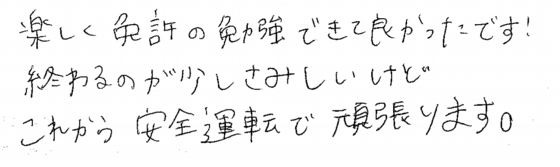 楽しく免許の勉強できて良かったです!
終わるのが少しさみしいけど
これから安全運転で頑張ります。